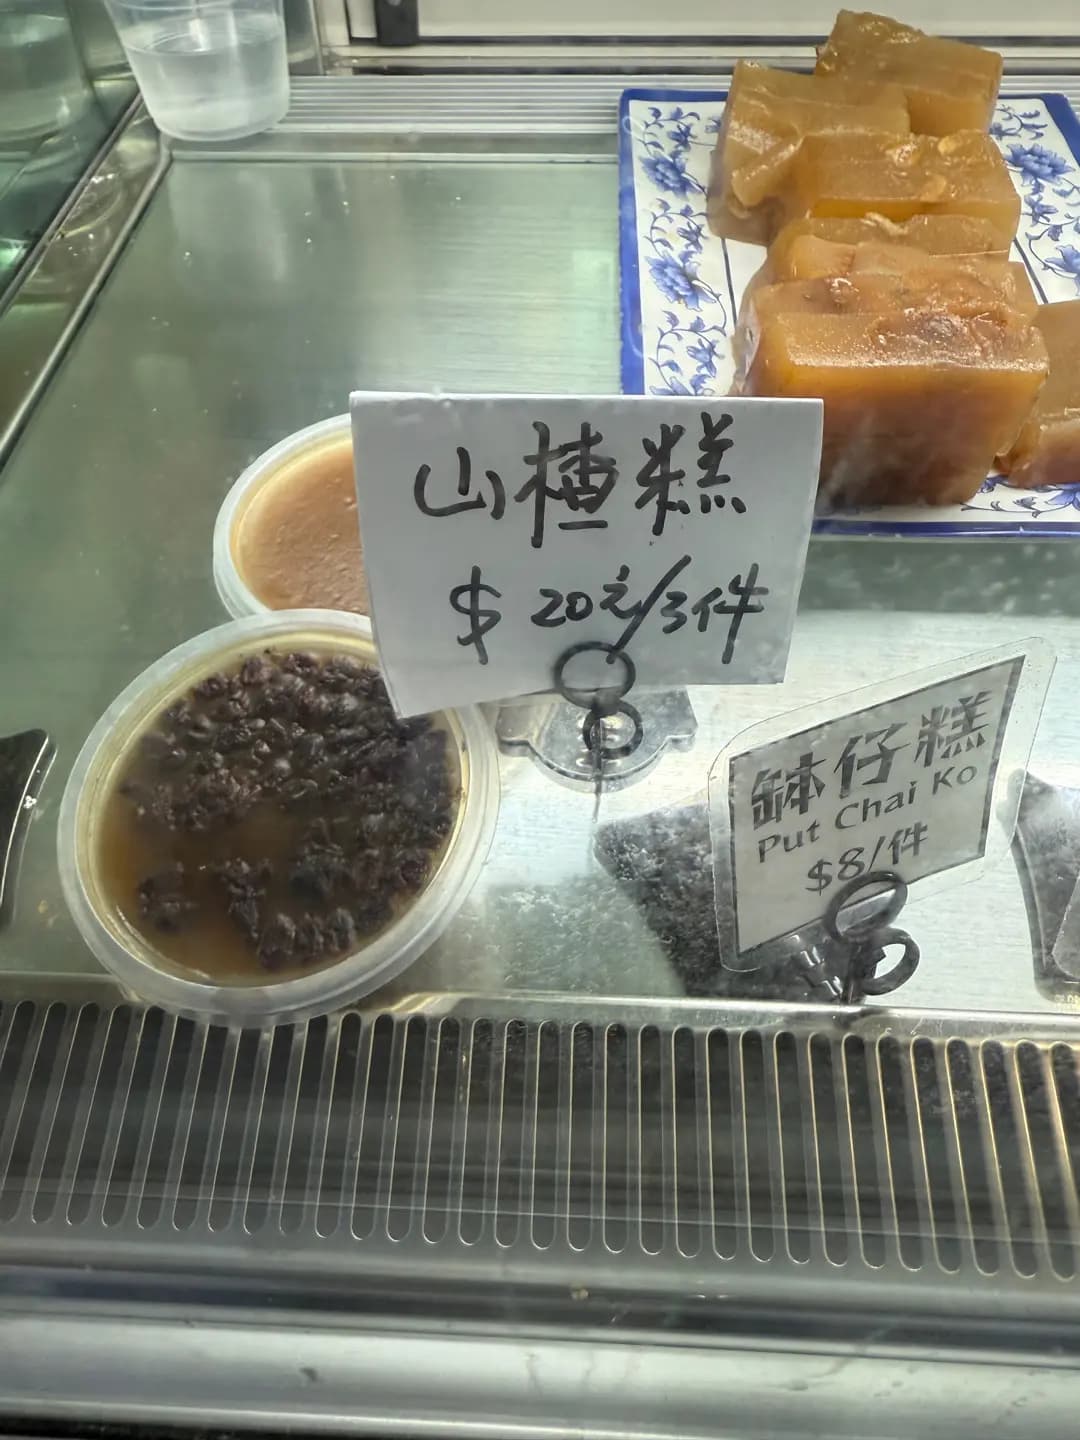 山楂糕
$20元/3件
缽仔糕
Put Chai Ko
$8/件